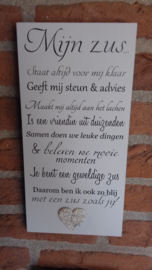 Mijn zus...
Staat altijd voor mij klaar
Geeft mij steun & advies
Maakt mij altijd aan het lachen
Is een vriendin uit duizenden
Samen doen we leuke dingen
& beleven we mooie
momenten
Je bent een geweldige zus
Daarom ben ik ook zo blij
met een zus zoals jij!